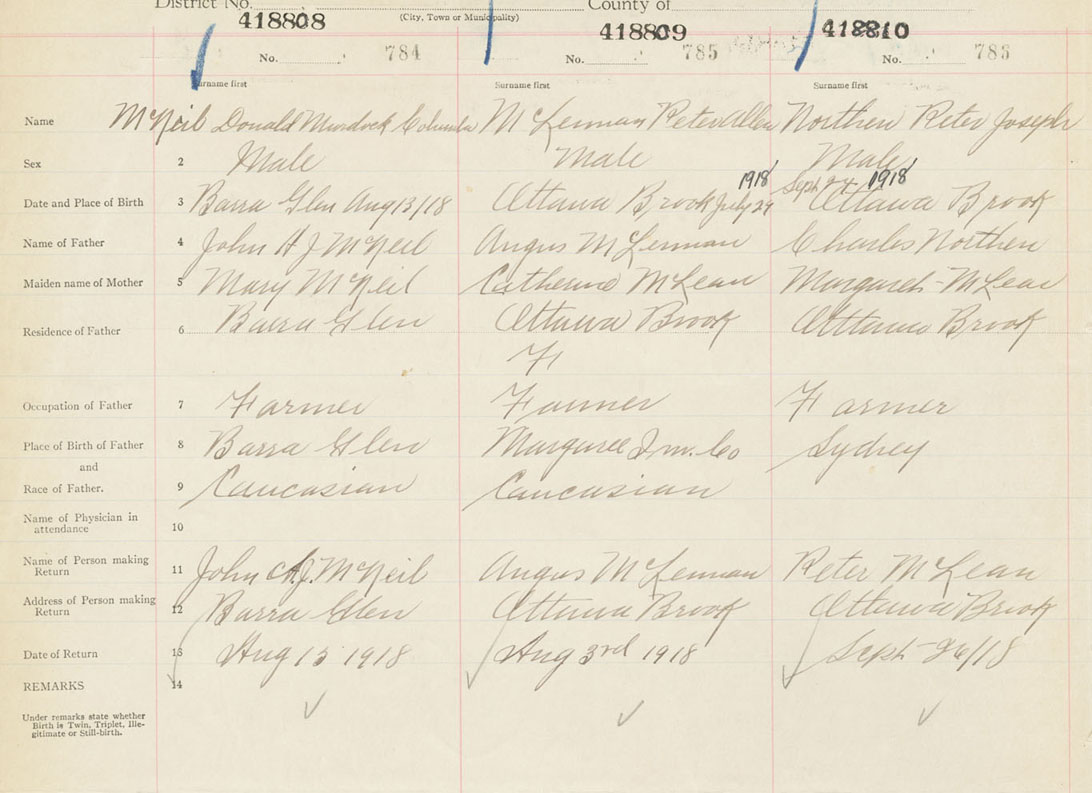 District No. County of
(City, Town or Municipality)
418808 418809 418810
No. 784 No. 785 No. 786
Surname first Surname first Surname first
Name McNeil Donald Murdock Columba McLennan Peter Allen Northen Peter Joseph
Sex 2 Male Male Male
1918 Sept 24 1918
Date and Place of Birth 3 Barra Glen Aug 13/18 Ottawa Brook July 29 Ottawa Brook
Name of Father 4 John A J McNeil Angus McLennan Charles Northen
Maiden name of Mother 5 Mary McNeil Catherine McLean Margaret McLean
Residence of Father 6 Barra Glen Ottawa Brook Ottawa Brook
F
Occupation of Father 7 Farmer Farmer Farmer
Place of Birth of Father 8 Barra Glen Margaree Inv. Co Sydney
and
Race of Father. 9 Caucasian Caucasian
Name of Physician in
attendance 10
Name of Person making
Return 11 John A.J. McNeil Angus McLennan Peter McLean
Address of Person making
Return 12 Barra Glen Ottawa Brook Ottawa Brook
Date of Return 13 Aug 13 1918 Aug 3rd 1918 Sept 26/18
REMARKS 14
Under remarks state whether
Birth is Twin, Triplet, Ille-
gitimate or Still-birth.